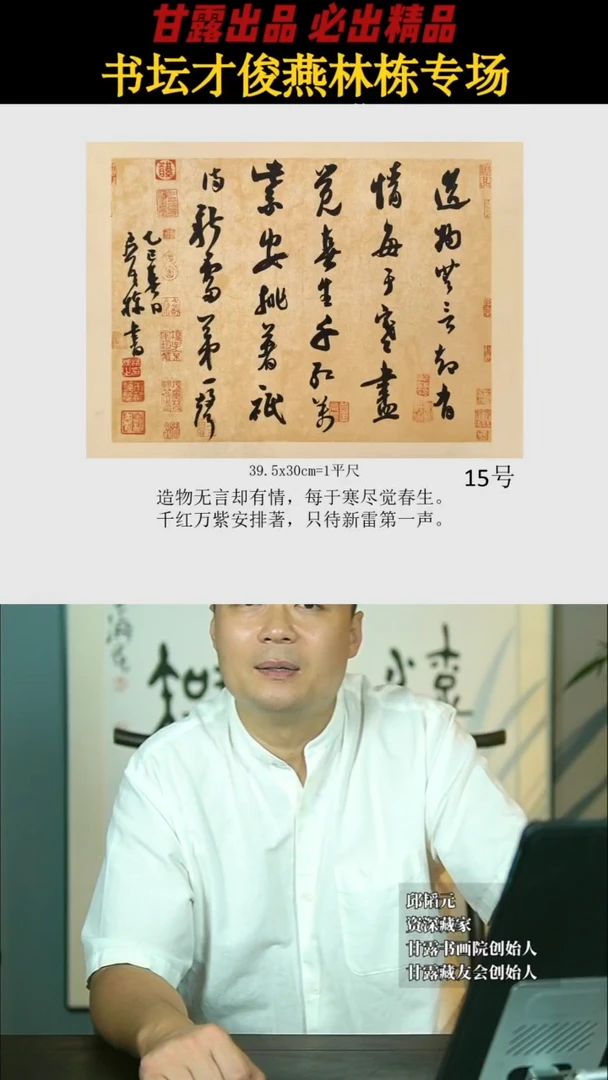 甘露出品 必出精品
书坛才俊燕林栋专场
造物无言却有
情每于寒盡
觉春生千红万
紫安排著祇
待新雷第一聲
乙巳春日
燕林栋書
39.5x30cm=1平尺
15号
造物无言却有情，每于寒尽觉春生。
千红万紫安排著，只待新雷第一声。
邱韬元
资深藏家
甘露书画院创始人
甘露藏友会创始人